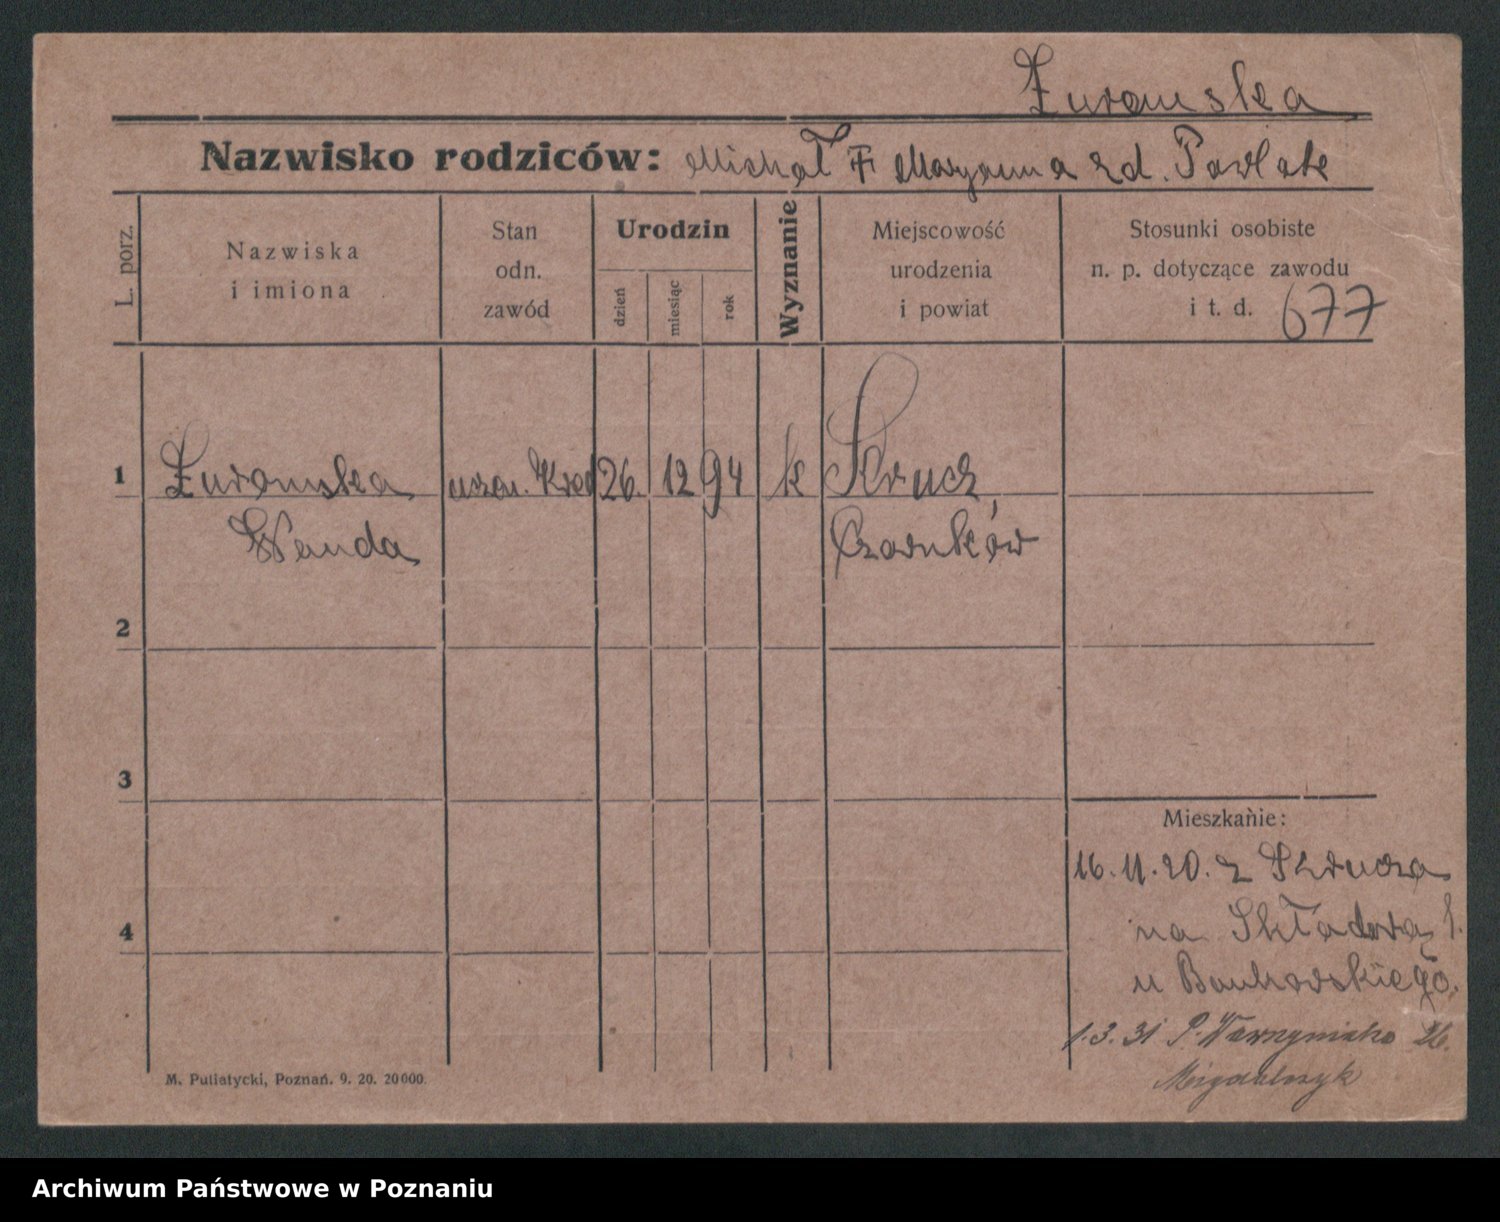 Żuromska
Nazwisko rodziców: Michał i Maryanna zd. Pawlak
L. porz.
Nazwiska
i imiona
Stan
odn.
zawód
Urodzin
dzień
miesiąc
rok
Wyznanie
Miejscowość
urodzenia
i powiat
Stosunki osobiste
n. p. dotyczące zawodu
i t. d. 677
1 Żuromska 26. 12 94 k Krucz
Wanda Czarnków
2
3
Mieszkanie:
16.11.20. z Krucza
na Składową 1.
4
u Bonkowskiego.
1.3.31 P. Wawrzyniaka 26.
M. Puliatycki, Poznań. 9. 20. 20000.
Migdalczyk
Archiwum Państwowe w Poznaniu